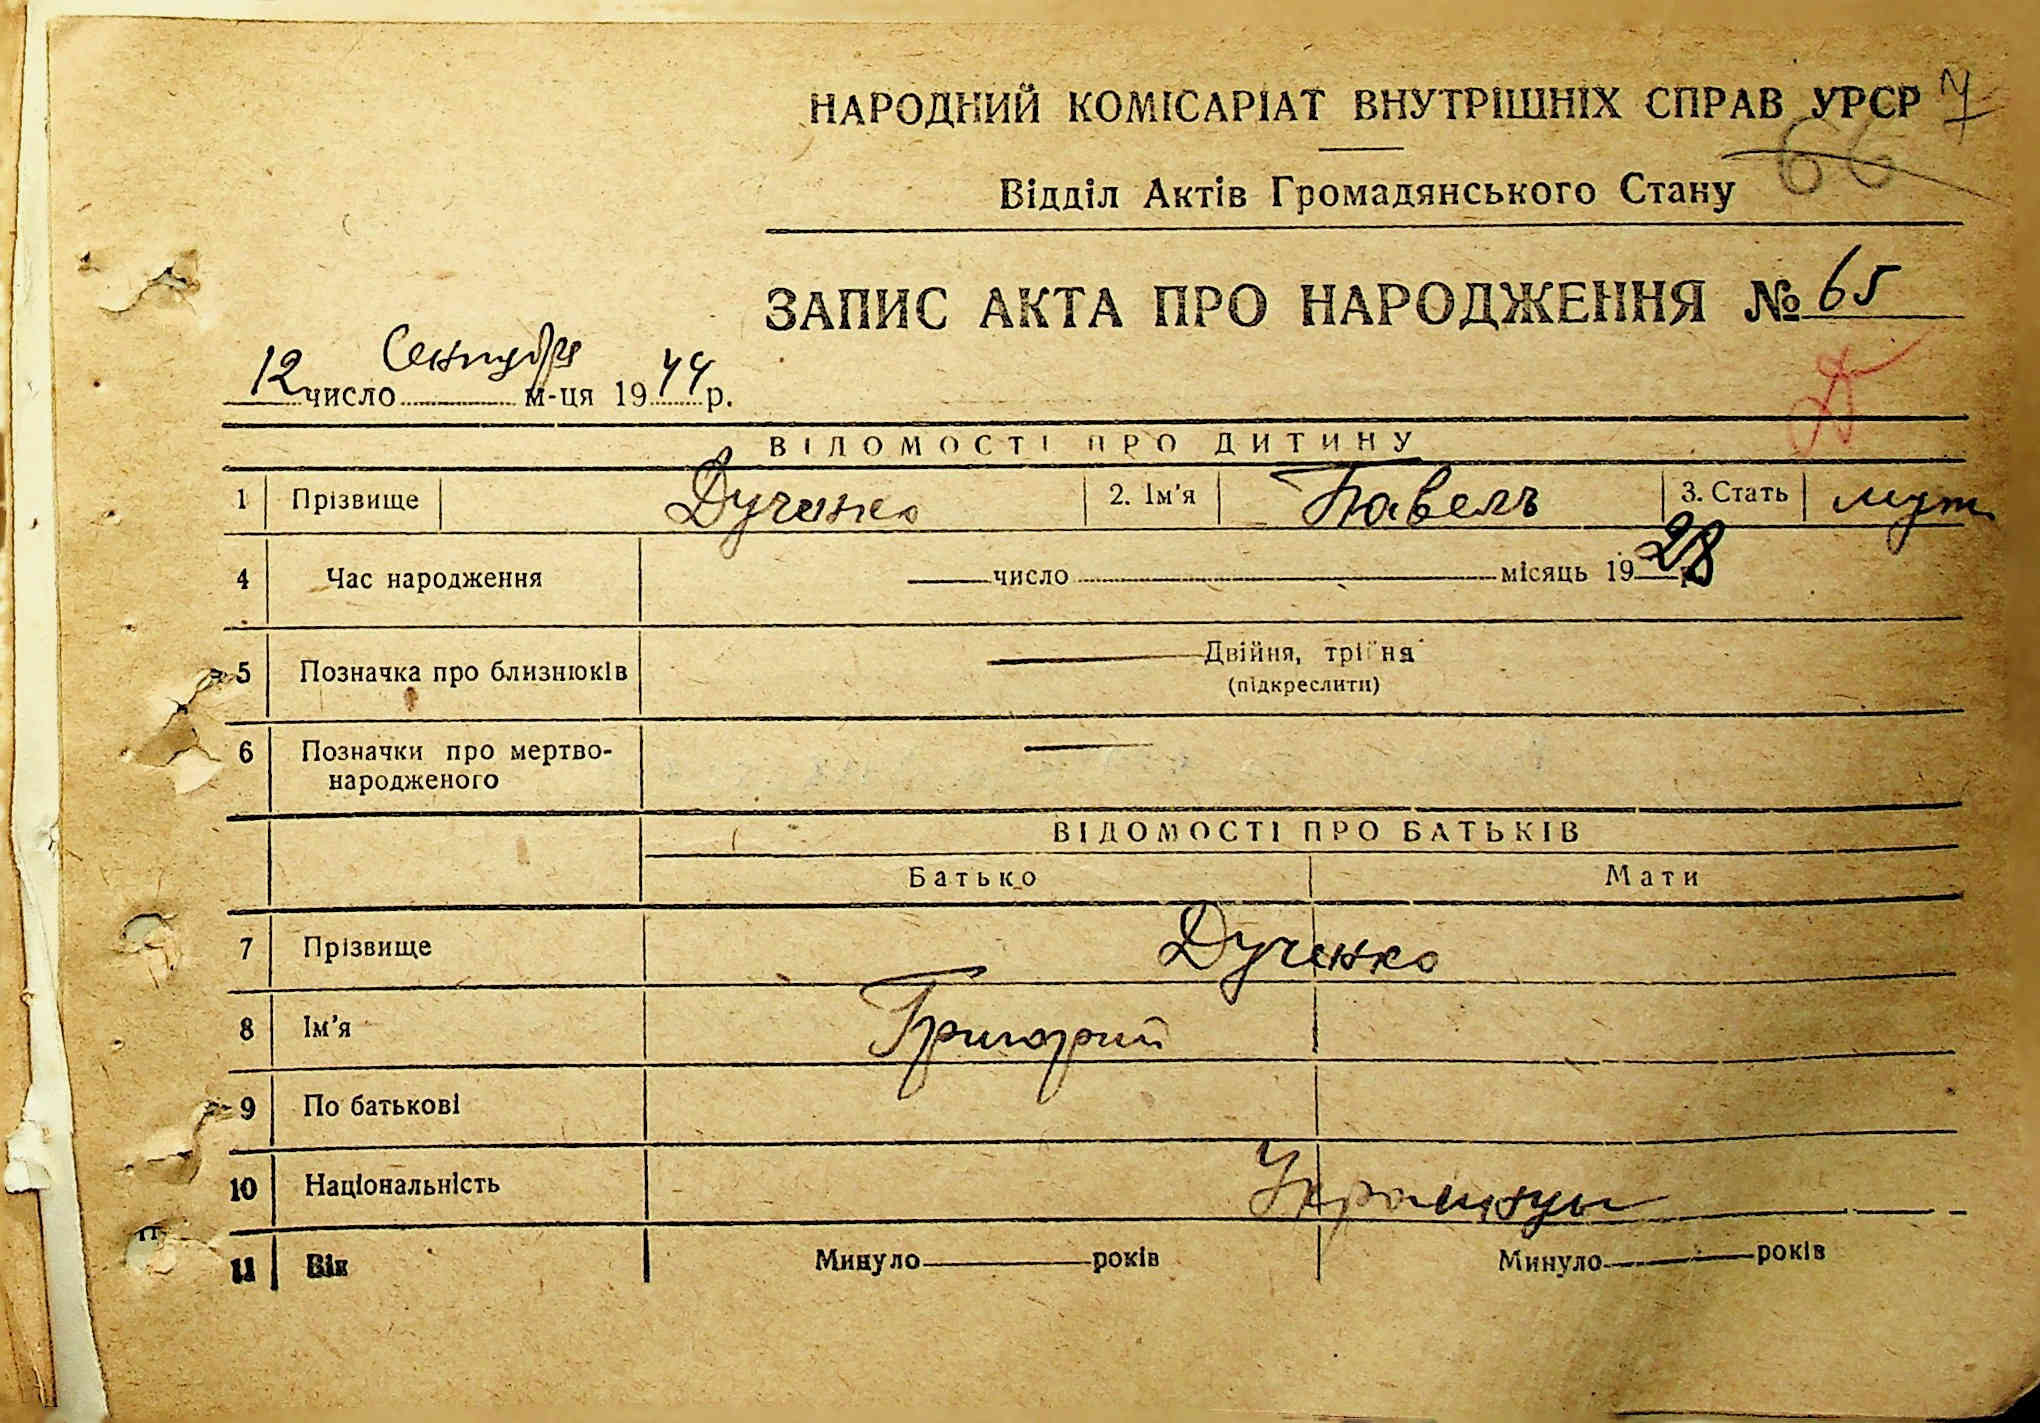 НАРОДНИЙ КОМІСАРІАТ ВНУТРІШНІХ СПРАВ УРСР 7
66
Відділ Актів Громадянського Стану
ЗАПИС АКТА ПРО НАРОДЖЕННЯ № 65
12 число Сентября м-ця 1944 р.
ВІДОМОСТІ ПРО ДИТИНУ
1 Прізвище Дученко 2. Ім'я Павелъ 3. Стать муж
4 Час народження число місяць 1928 р.
5 Позначка про близнюків Двійня, трійня
(підкреслити)
6 Позначки про мертво-
народженого
ВІДОМОСТІ ПРО БАТЬКІВ
Батько Мати
7 Прізвище Дученко
8 Ім'я Григорий
9 По батькові
10 Національність Украинцы
11 Вік Минуло років Минуло років